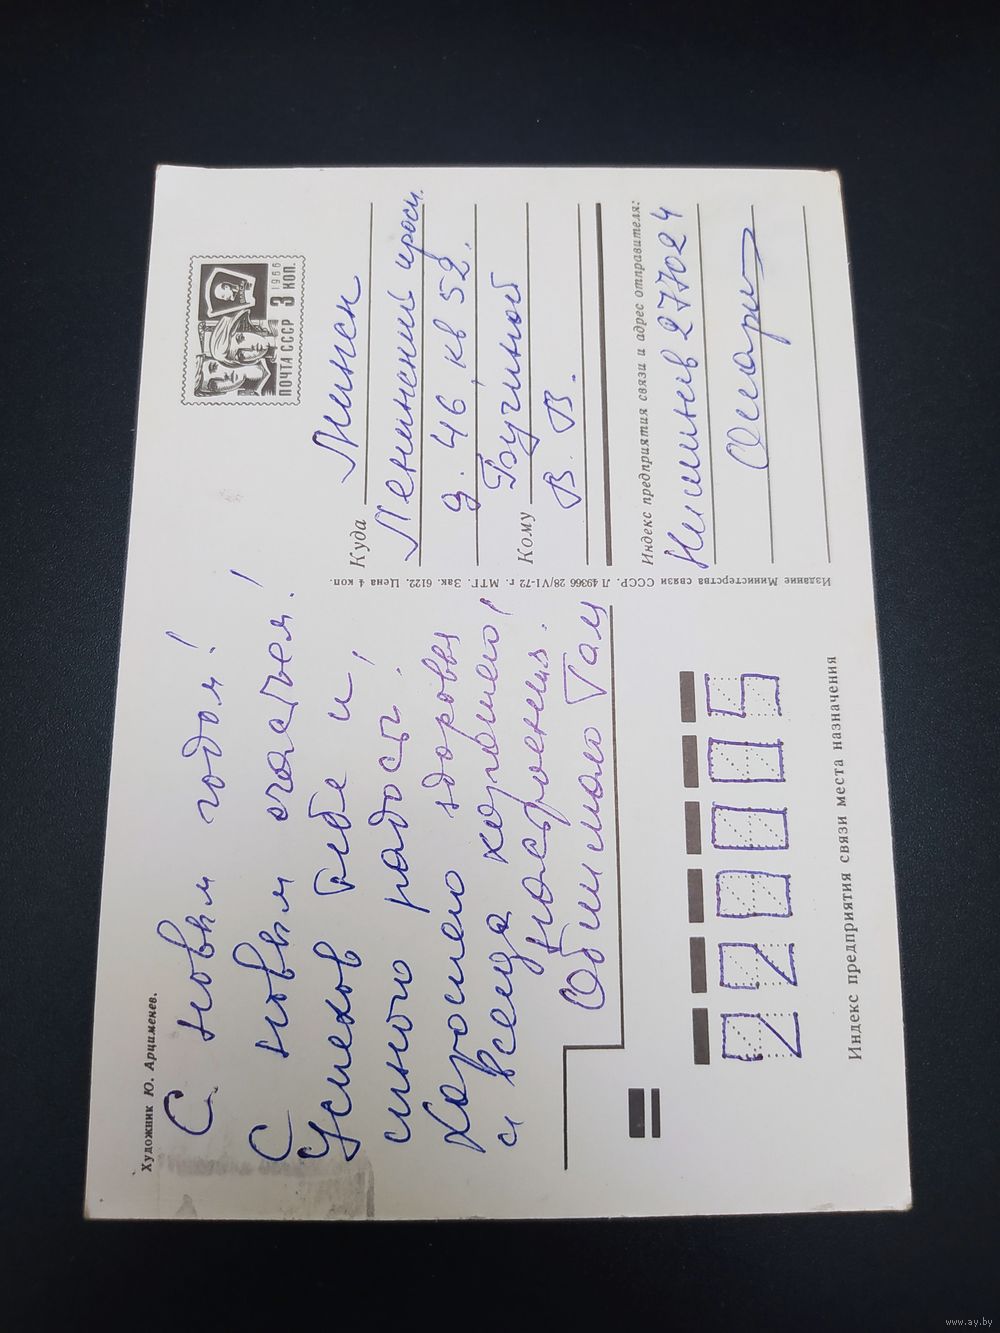 Художник Ю. Арцименев.
С новым годом!
С новым счастьем!
Успехов тебе и
много радости!
Хорошего здоровья
и всегда хорошего
настроения!
Обнимаю Там
ПОЧТА СССР 3 КОП.
1966
Куда Минск
Ленинский просп.
д. 46, кв 52.
Кому
В. В.
Издание Министерства связи СССР. Л 49366 28/VI-72 г. МТГ. Зак. 6122. Цена 4 коп.
Индекс предприятия связи и адрес отправителя:
Кишинев 277024
220005
Индекс предприятия связи места назначения
www.ay.by